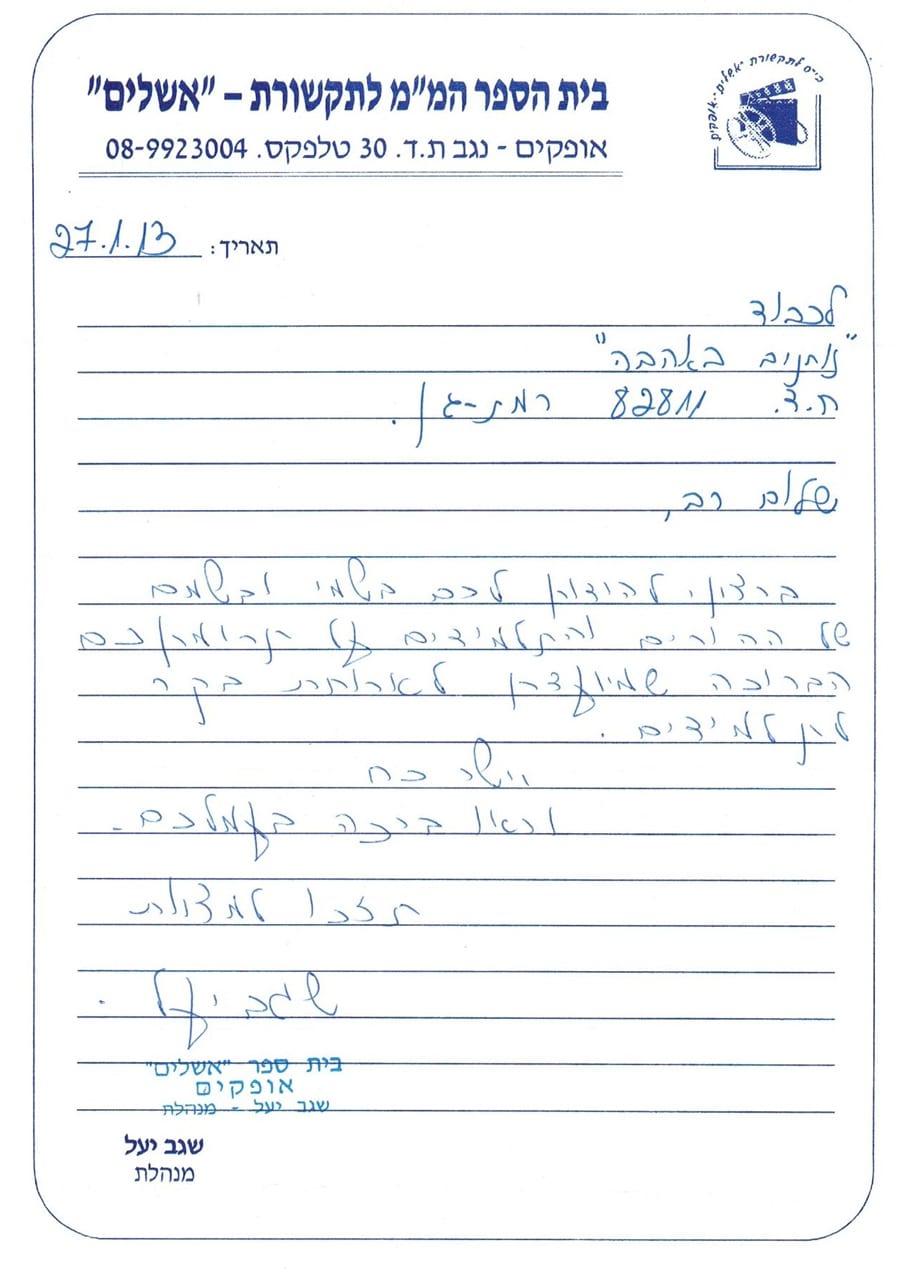 בית הספר המ"מ לתקשורת – "אשלים"
אופקים - נגב ת.ד. 30 טלפקס. 08-9923004
בי"ס לתקשורת "אשלים" - אופקים
תאריך: 27.1.13
לכבוד
"נותנים באהבה"
ת.ד. 82811 רמת-גן.
שלום רב,
ברצוני להודות לכם בשמי ובשמם
של ההורים והתלמידים על תרומתכם
הברוכה שמיועדת לארוחת בקר
לתלמידים.
יישר כח
וראו ברכה בעמלכם.
תזכו למצוות
שגב יעל.
בית ספר "אשלים"
אופקים
שגב יעל - מנהלת
שגב יעל
מנהלת